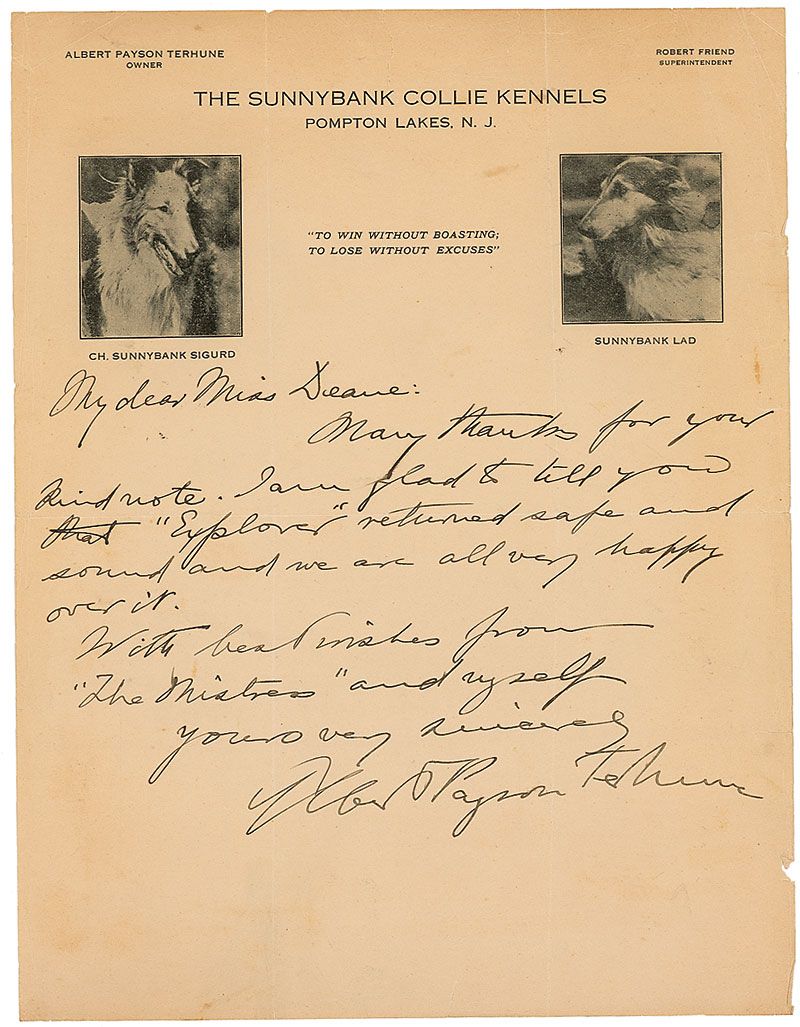 ALBERT PAYSON TERHUNE
OWNER
ROBERT FRIEND
SUPERINTENDENT
THE SUNNYBANK COLLIE KENNELS
POMPTON LAKES, N. J.
"TO WIN WITHOUT BOASTING;
TO LOSE WITHOUT EXCUSES"
CH. SUNNYBANK SIGURD
SUNNYBANK LAD
My dear Miss Deane:
Many thanks for your
kind note. I am glad to tell you
that "Explorer" returned safe and
sound and we are all very happy
over it.
With best wishes from
"The Mistress" and myself
yours very sincerely
Albert Payson Terhune